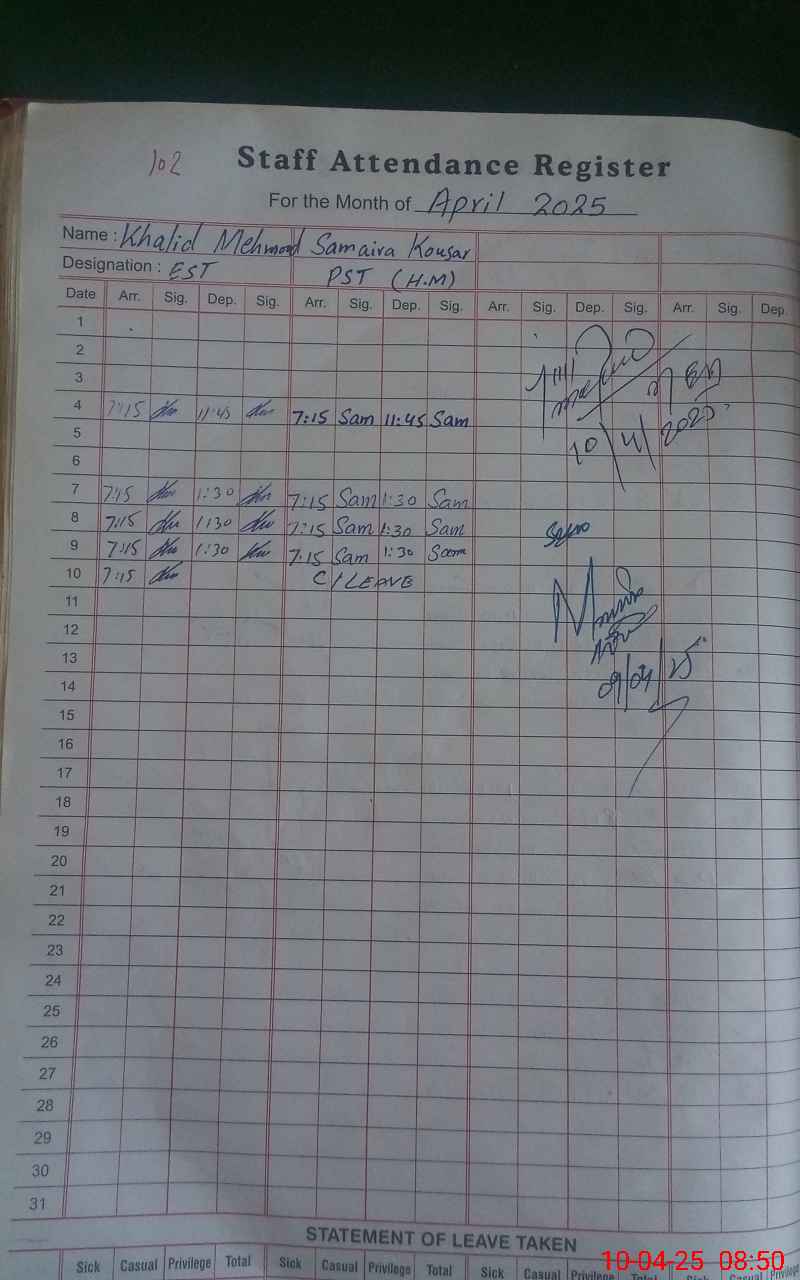 102 Staff Attendance Register
For the Month of April 2025
Name : Khalid Mehmood Samaira Kousar
Designation : EST PST (H.M)
Date Arr. Sig. Dep. Sig. Arr. Sig. Dep. Sig. Arr. Sig. Dep. Sig. Arr. Sig. Dep.
1
2
3
4 7:15 11:45 7:15 Sam 11:45 Sam
10/4/2025
5
6
7 7:15 1:30 7:15 Sam 1:30 Sam
8 7:15 1:30 7:15 Sam 1:30 Sam
9 7:15 1:30 7:15 Sam 1:30 Sam
10 7:15 C/LEAVE
11
12
13
14
09/04/25
15
16
17
18
19
20
21
22
23
24
25
26
27
28
29
30
31
STATEMENT OF LEAVE TAKEN
Sick Casual Privilege Total Sick Casual Privilege Total Sick Casual Privilege Total Sick Casual Privilege
10-04-25 08:50